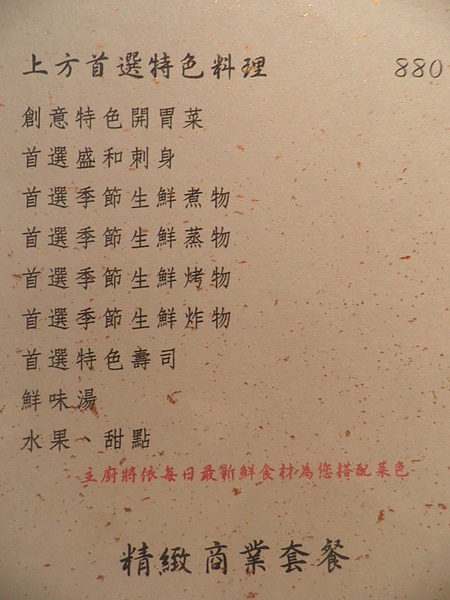 上方首選特色料理 880
創意特色開胃菜
首選盛和刺身
首選季節生鮮煮物
首選季節生鮮蒸物
首選季節生鮮烤物
首選季節生鮮炸物
首選特色壽司
鮮味湯
水果、甜點
主廚將依每日最新鮮食材為您搭配菜色
精緻商業套餐